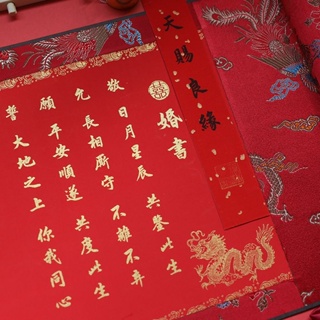 天賜良緣
囍
婚書
敬 日月星辰 共鑒此生
允 長相廝守 不離不弃
願 平安順遂 共度此生
誓 大地之上 你我同心